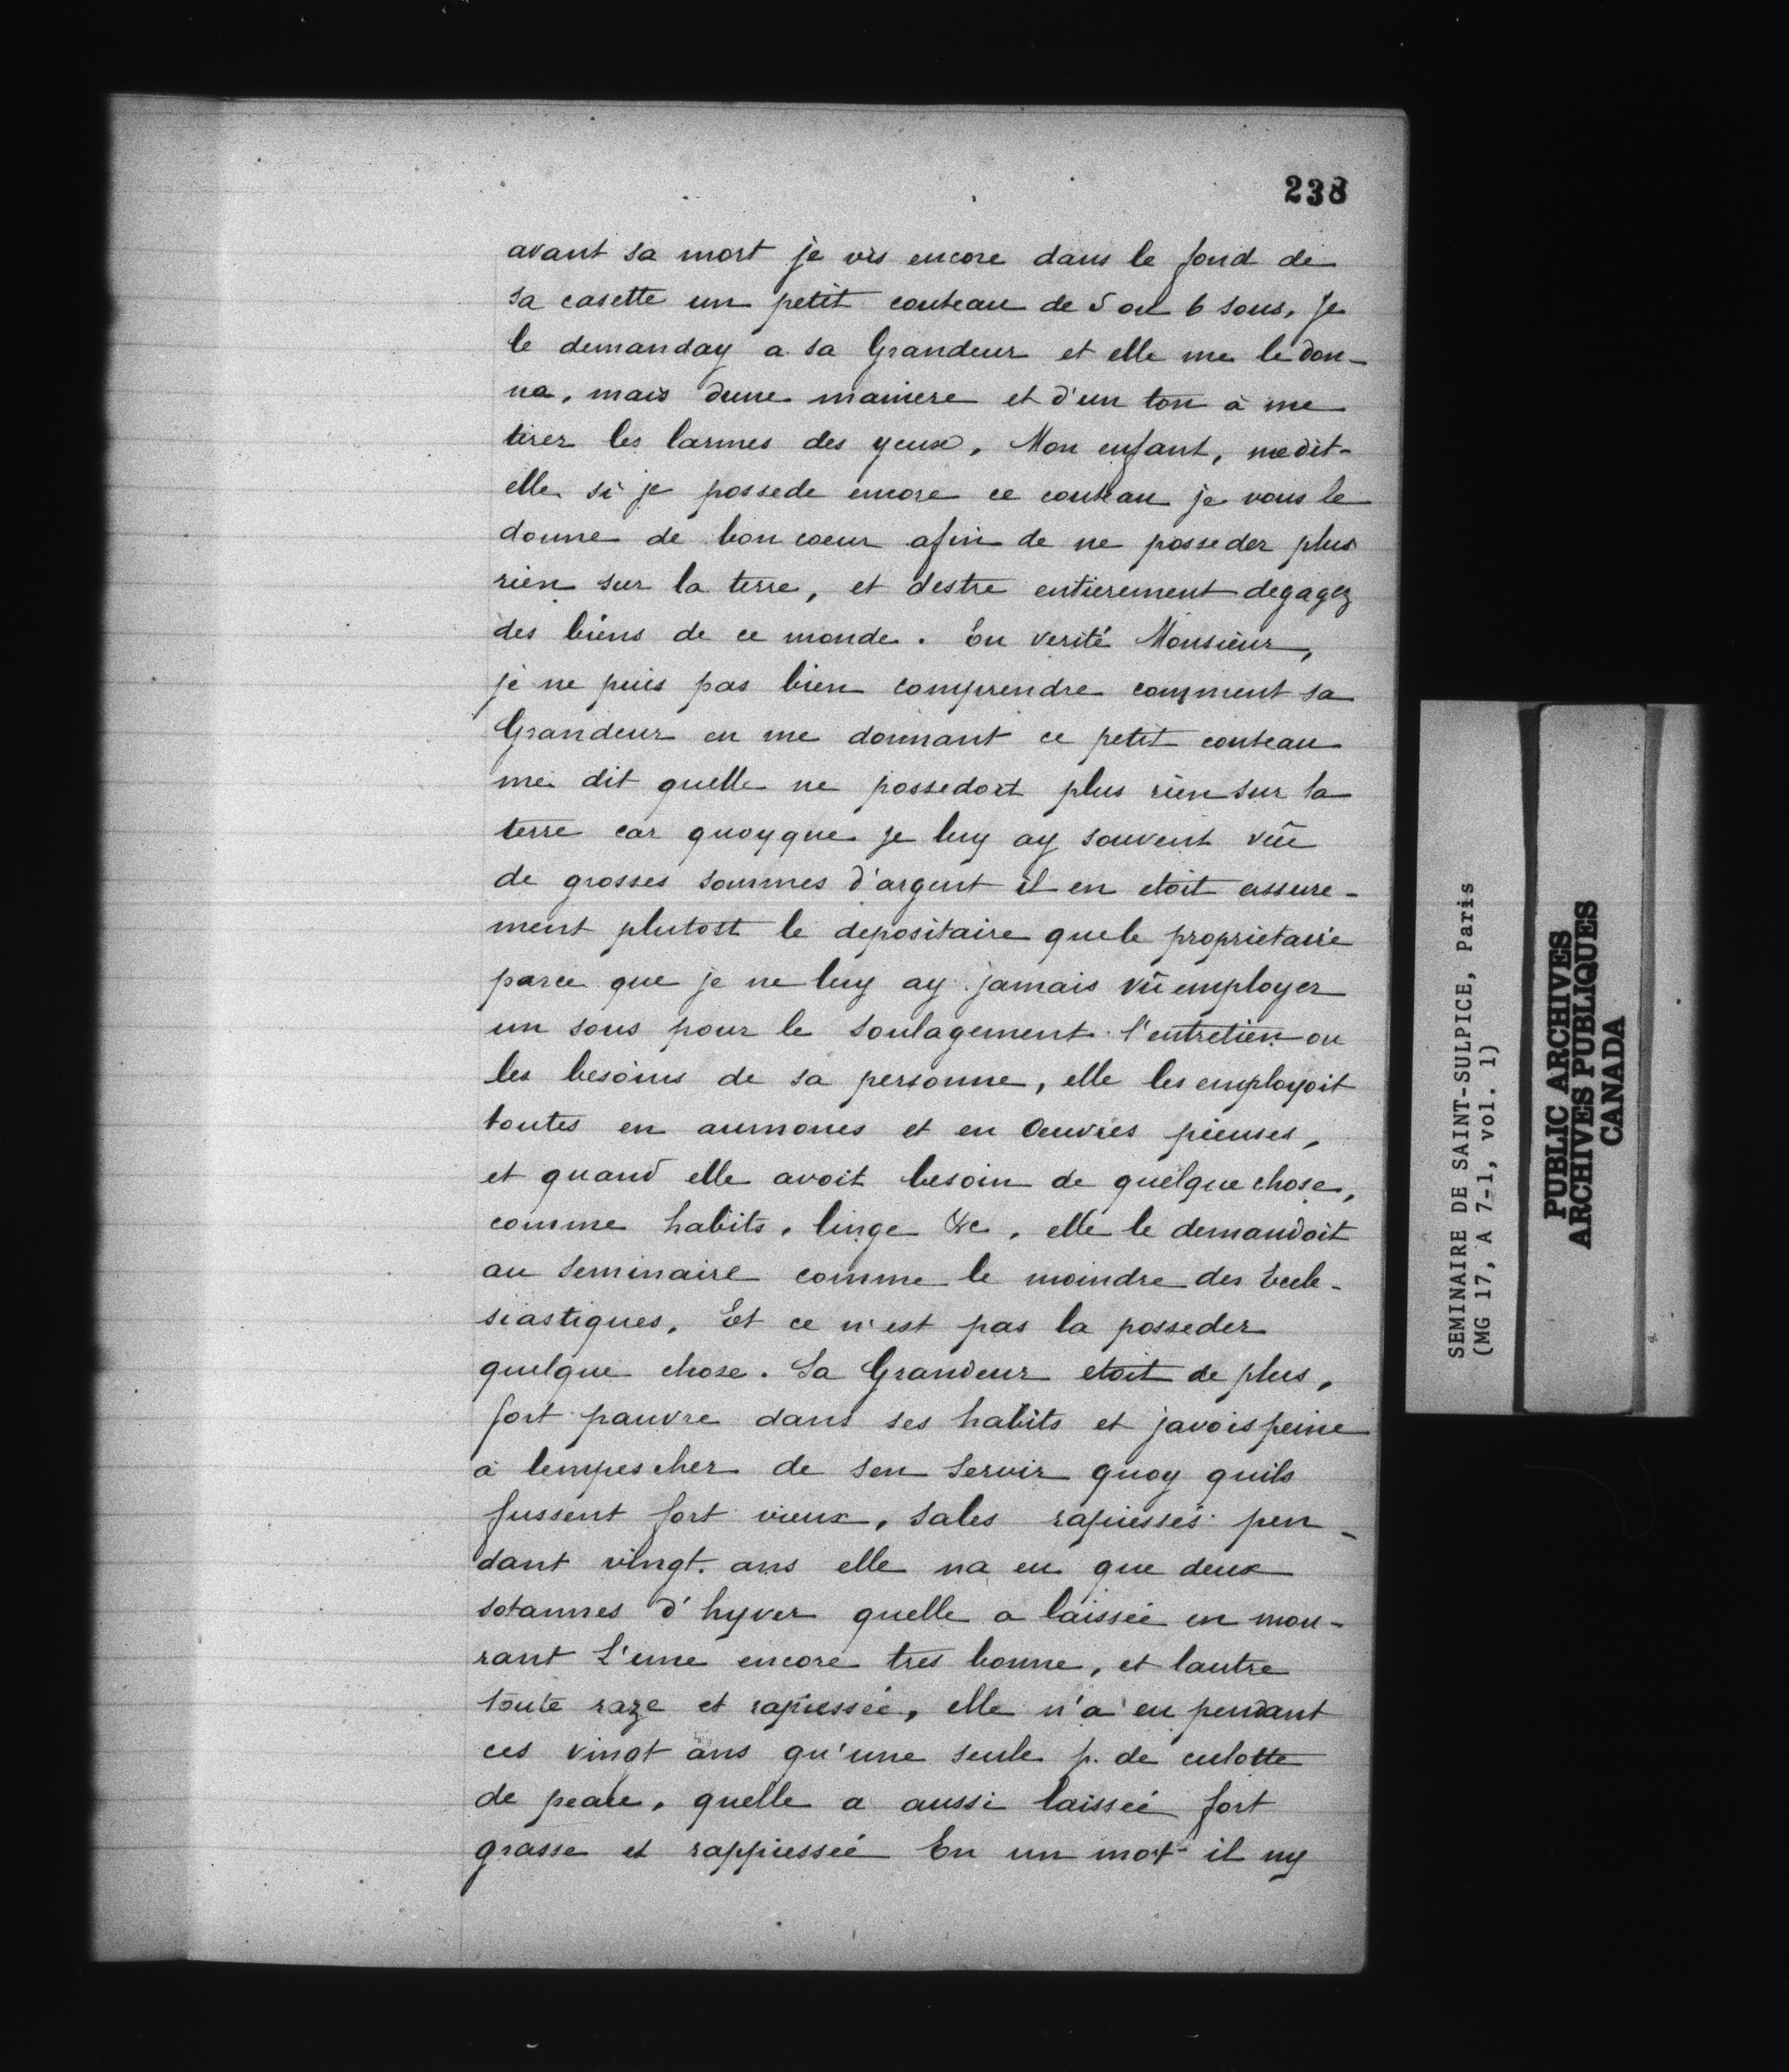 238
avant sa mort je vis encore dans le fond de
sa casette un petit couteau de 5 ou 6 sous, Je
le demanday a sa Grandeur et elle me le don-
na, mais dune maniere et d'un ton à me
tirer les larmes des yeux, Mon enfant, me dit-
elle si je possede encore ce couteau je vous le
donne de bon coeur afin de ne posseder plus
rien sur la terre, et destre entierement degagez
des biens de ce monde. En verité Monsieur,
je ne puis pas bien comprendre comment sa
Grandeur en me donnant ce petit couteau
me dit quelle ne possedoit plus rien sur la
terre car quoyque je luy ay souvent vû
de grosses sommes d'argent il en etoit assure-
ment plutost le depositaire que le proprietaire
parce que je ne luy ay jamais vû employer
un sous pour le soulagement l'entretien ou
les besoins de sa personne, elle les employoit
toutes en aumones et en Oeuvres pieuses,
et quand elle avoit besoin de quelque chose,
comme habits, linge &c, elle le demandoit
au Seminaire comme le moindre des Eccle-
siastiques, Et ce n'est pas la posseder
quelque chose. Sa Grandeur etoit de plus,
fort pauvre dans ses habits et javois peine
à lempescher de sen servir quoy quils
fussent fort vieux, sales rapiessés pen-
dant vingt ans elle na eu que deux
sotannes d'hyver quelle a laissée en mou-
rant L'une encore tres bonne, et lautre
toute raze et rapiessée, elle n'a eu pendant
ces vingt ans qu'une seule p. de culotte
de peau, quelle a aussi laissée fort
grasse et rappiessée En un mot il ny
SEMINAIRE DE SAINT-SULPICE, Paris
(MG 17, A 7-1, vol. 1)
PUBLIC ARCHIVES
ARCHIVES PUBLIQUES
CANADA